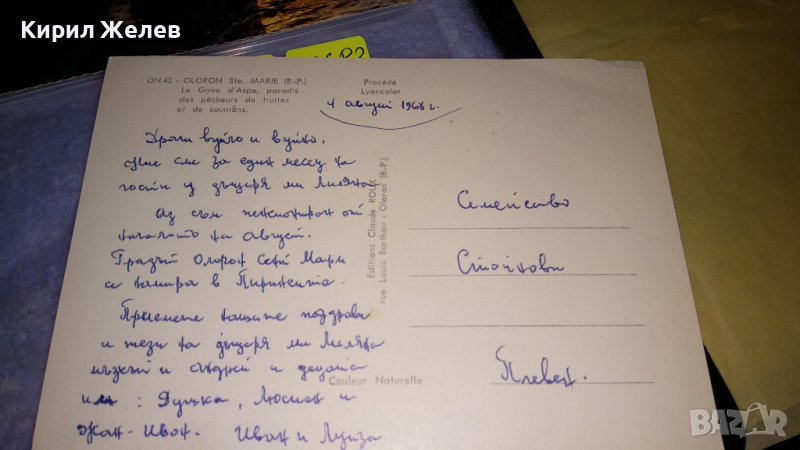 Кирил Желев
ON 43 - OLORON Ste. MARIE (B.-P.)
Le Gave d'Aspe, paradis
des pêcheurs de truites
et de saumons.
Procédé
Lyoncolor
4 август 1968 г.
Драги вуйчо и вуйно,
Ние сме за един месец на
гости у дъщеря ми Лиляна
Аз съм пенсионирам от
началото на август.
Градът Олорон Сент Мари
се намира в Пиринеите.
Приемете нашите поздрави
и тези на дъщеря ми Лиляна
мъжът и Андрей и децата
им: Дучка, Люсиен и
Жан-Иван. Иван и Луиза
Editions Claude ROUX
rue Louis Barthou - Oloron (B.-P.)
Couleur Naturelle
Семейство
Стойкови
Плевен.
BAZAR
bg